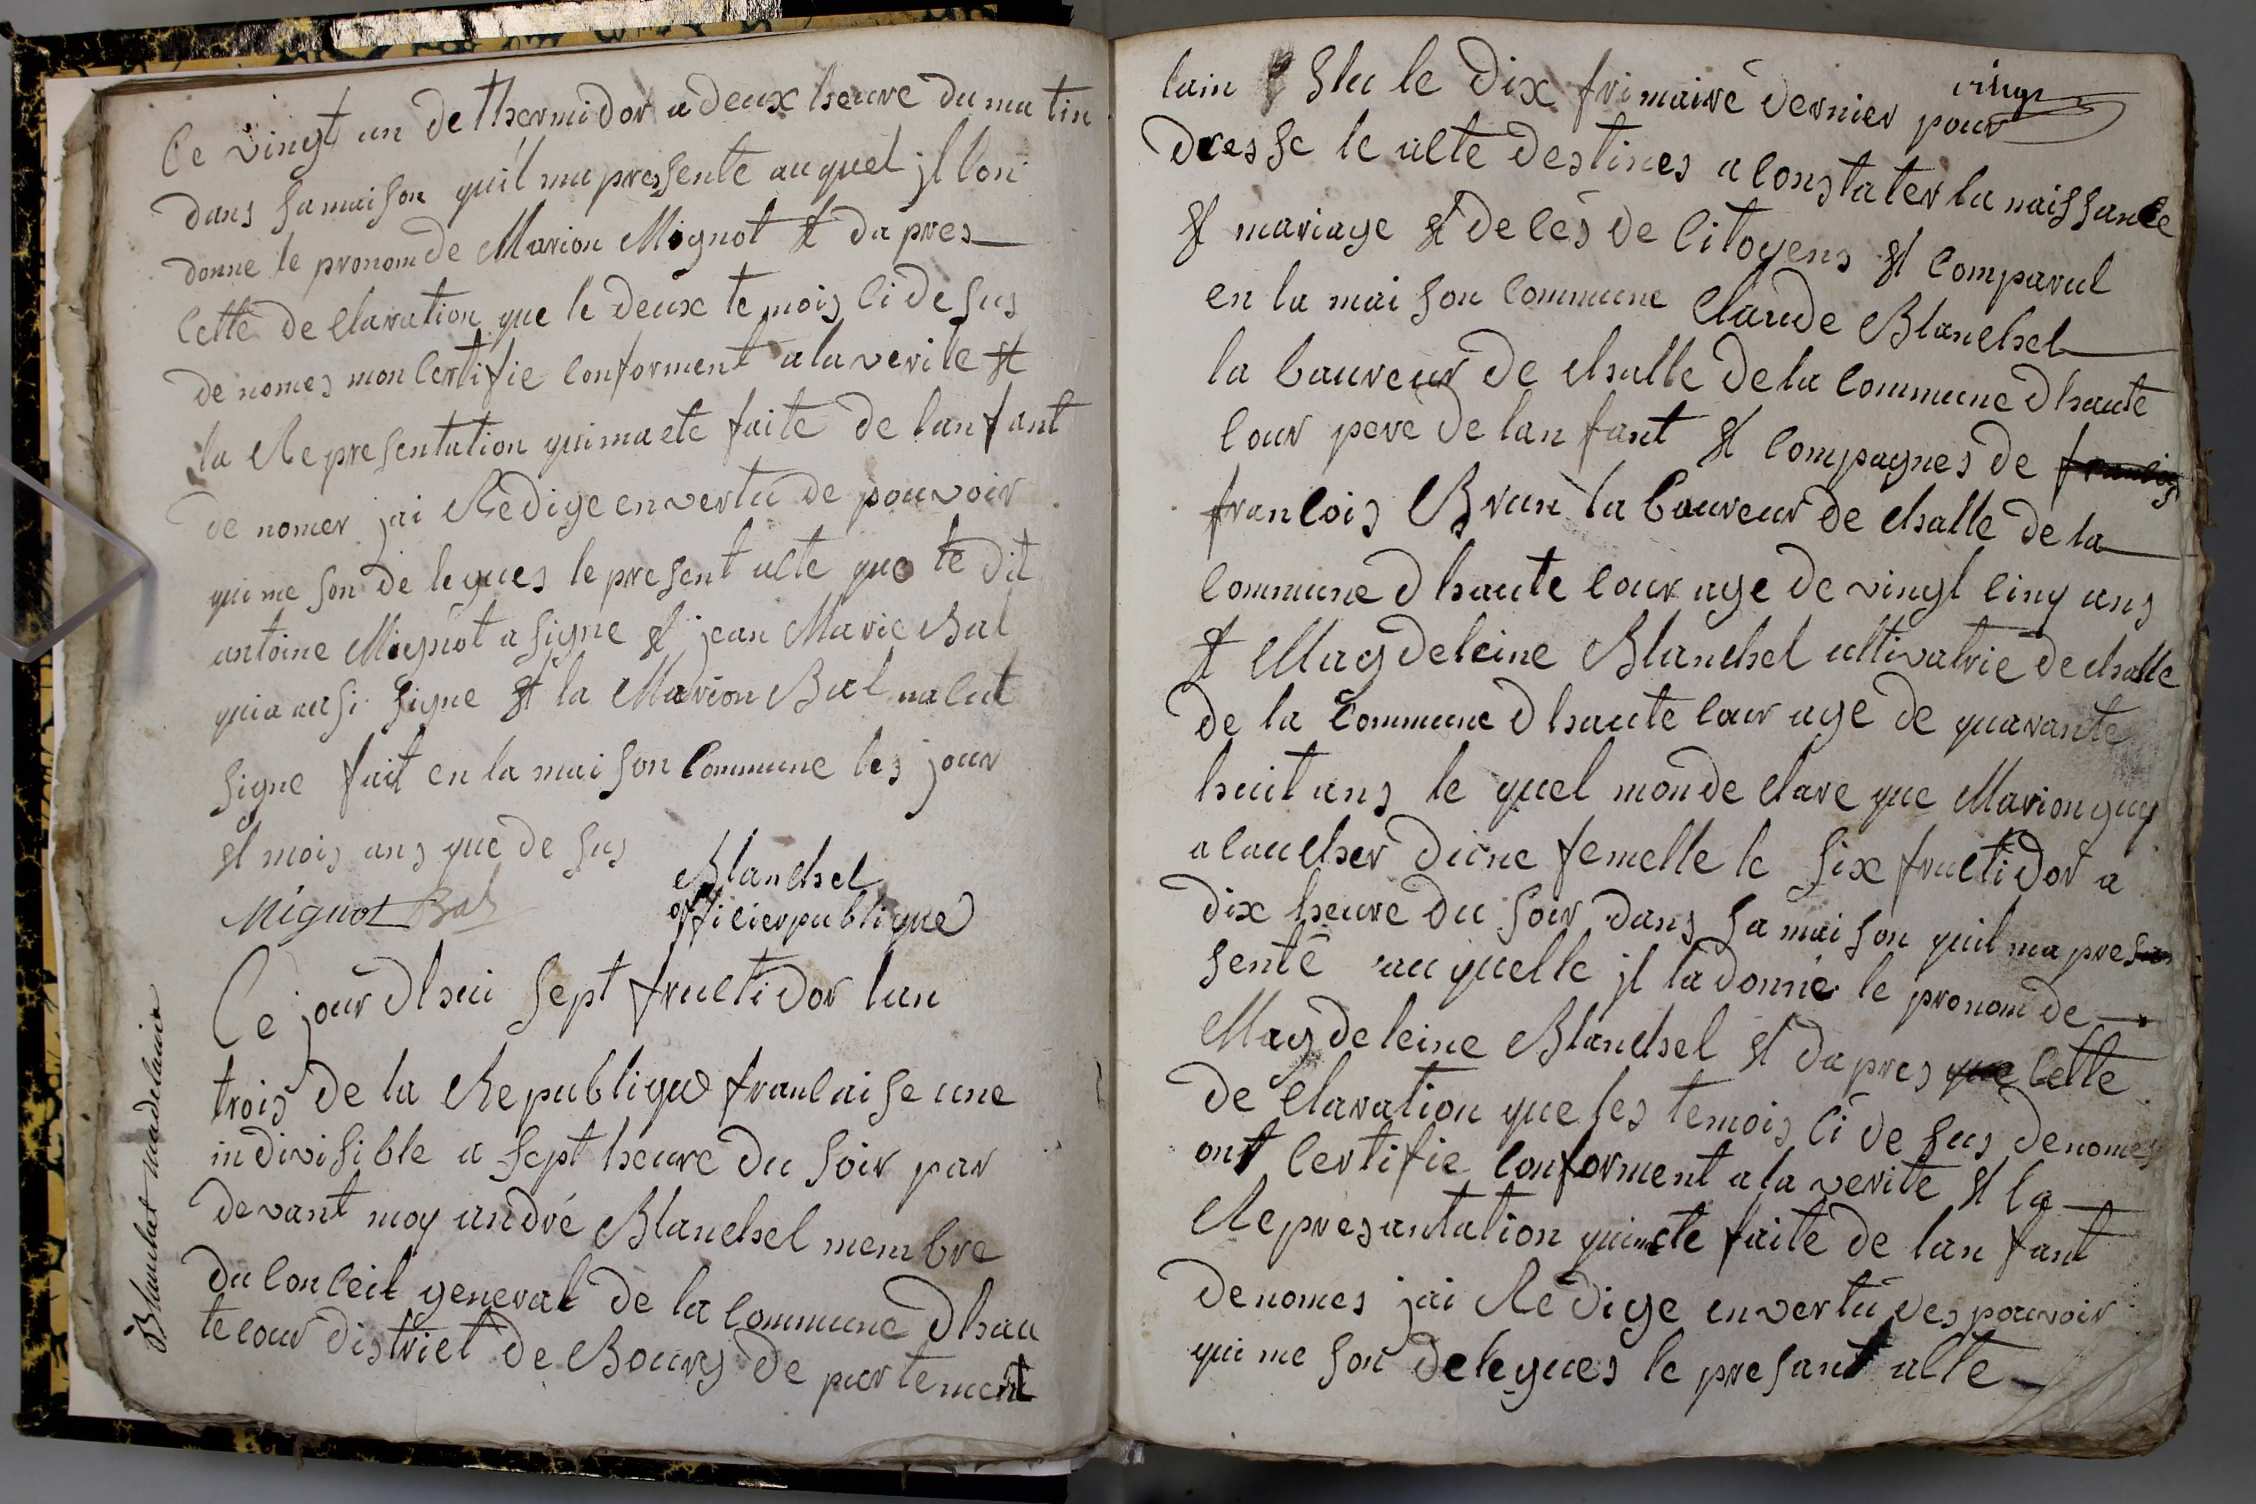 Ce vingt un de thermidor a deux heure du matin
dans sa maison quil ma pressente au quel jl lon
donne le pronom de Marion Mignot et da pres
cette de claration que le deux te mois ci de sus
de nomes mon certifie conforment a la verite et
la Representation qui ma ete faite de lanfant
de nomer jai Redige en vertu de pouvoir
qui me son de legues le present acte que le dit
antoine Mignot a signe et jean Marie Bal
qui a ausi signe et la Marion Bal na cut
signe fait en la mai son commune les jour
et mois ans que de sus
Mignot Bal
Blanchet
officier publique
Ce jour dhui sept fructidor lan
trois de la Republique francaise une
indivisible a sept heure du soir par
devant moy andré Blanchet membre
du conceil general de la commune dhau
te cour district de Bourg de partement
Blanchet madelaine
vingt
lain Elu le dix frimaire dernier pour
dresse le acte destines a constater la naissance
et mariage et de ces de citoyens et comparut
en la mai son commune Claude Blanchet
la boureur de challe de la commune dhaute
cour pere de lan fant et compagnes de francois
francois Brun la boureur de challe de la
commune dhaute cour age de vingt cinq ans
et Magdeleine Blanchet cultivatrie de challe
de la commune dhaute cour age de quarante
huit ans le quel mon de clare que Marion guy
a caucher dune femelle le six fructidor a
dix heure du soir dans sa mai son quil ma presan
sente au quelle jl la donné le pronom de
Magdeleine Blanchet et da pres que cette
de claration que les temois ci de sus denomes
ont certifie conforment a la verite et la
Represantation qui m ete faite de lan fant
de nomes jai Redige en vertu des pouvoir
qui me son delegues le presant acte